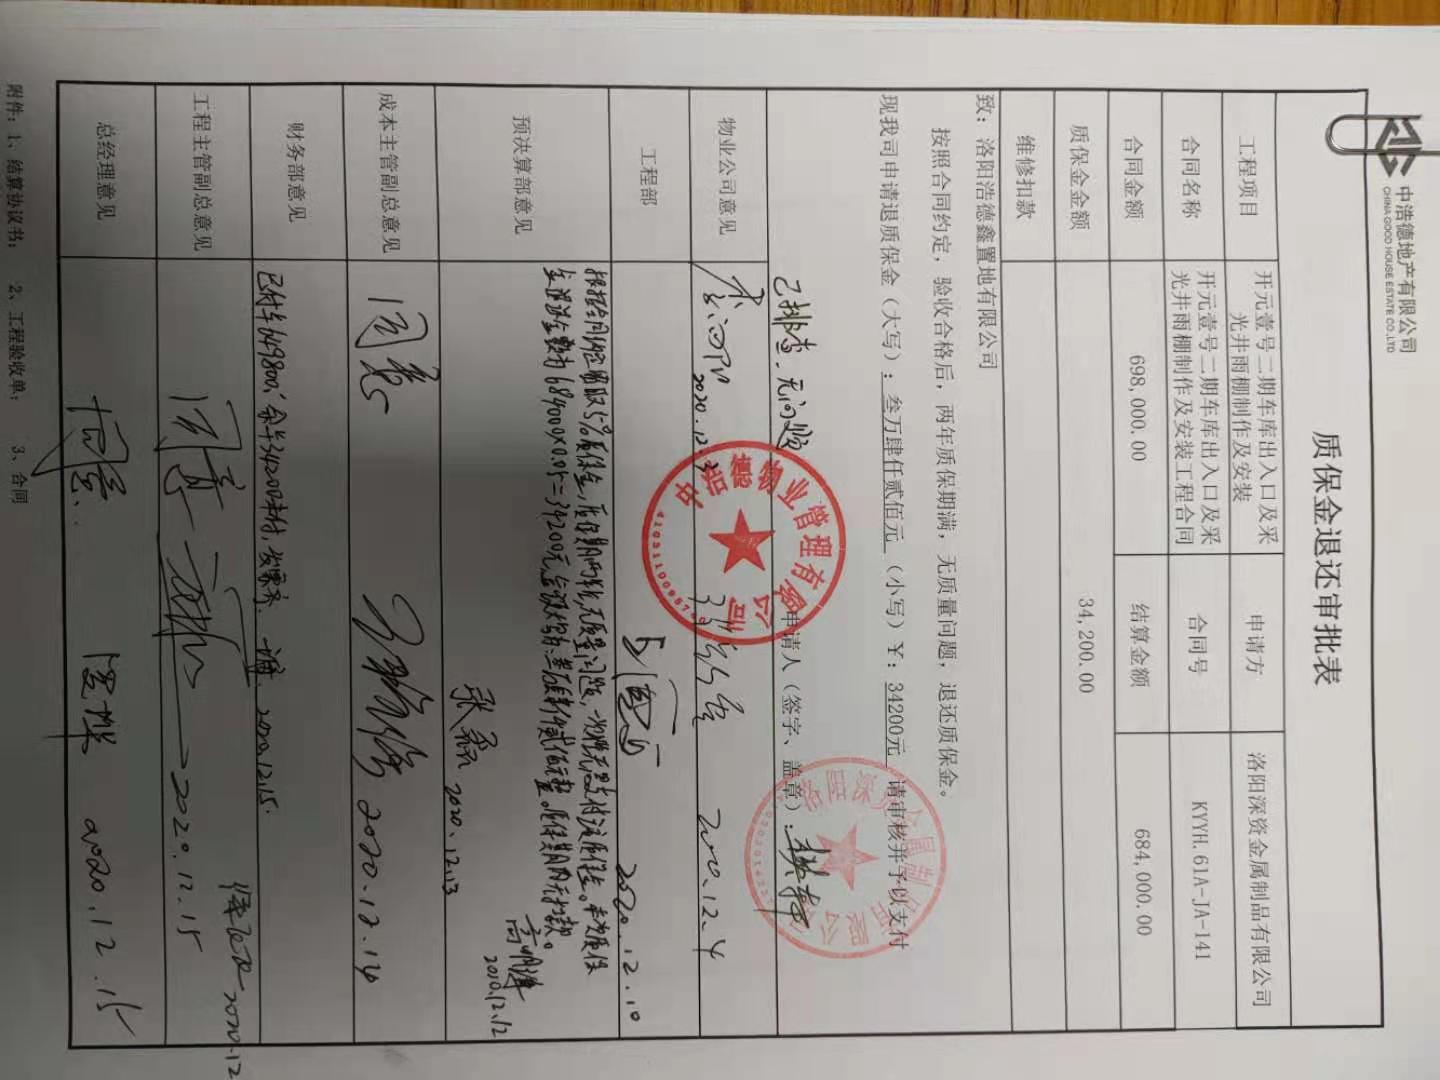 中浩德地产有限公司
CHINA GOOD HOUSE ESTATE CO.,LTD
质保金退还审批表
工程项目 开元壹号二期车库出入口及采光井雨棚制作及安装 申请方 洛阳深资金属制品有限公司
合同名称 开元壹号二期车库出入口及采光井雨棚制作及安装工程合同 合同号 KYYH.61A-JA-141
合同金额 698,000.00 结算金额 684,000.00
质保金金额 34,200.00
维修扣款
致：洛阳浩德鑫置地有限公司
按照合同约定，验收合格后，两年质保期满，无质量问题，退还质保金。
现我司申请退质保金（大写）：叁万肆仟贰佰元（小写）￥：34200元 请审核并予以支付
申请人（签字、盖章）：
已排查，无问题
物业公司意见 2020.12.3 2020.12.4
中浩德物业管理有限公司
工程部 2020.12.10
预决算部意见 根据合同约定留取5%质保金，质保期两年，无质量问题，一次性无息支付该质保金。本次质保
金退还金额为684000×0.05=34200元，金额大写为：叁万肆仟贰佰元整。质保期内无扣款。
张磊 2020.12.13 2020.12.12
成本主管副总意见 2020.12.14
财务部意见 已付车649800，余车34200未付，发票齐。 2020.12.15.
工程主管副总意见 2020.12.15 2020.12
总经理意见 2020.12.15
附件：1、结算协议书； 2、工程验收单； 3、合同